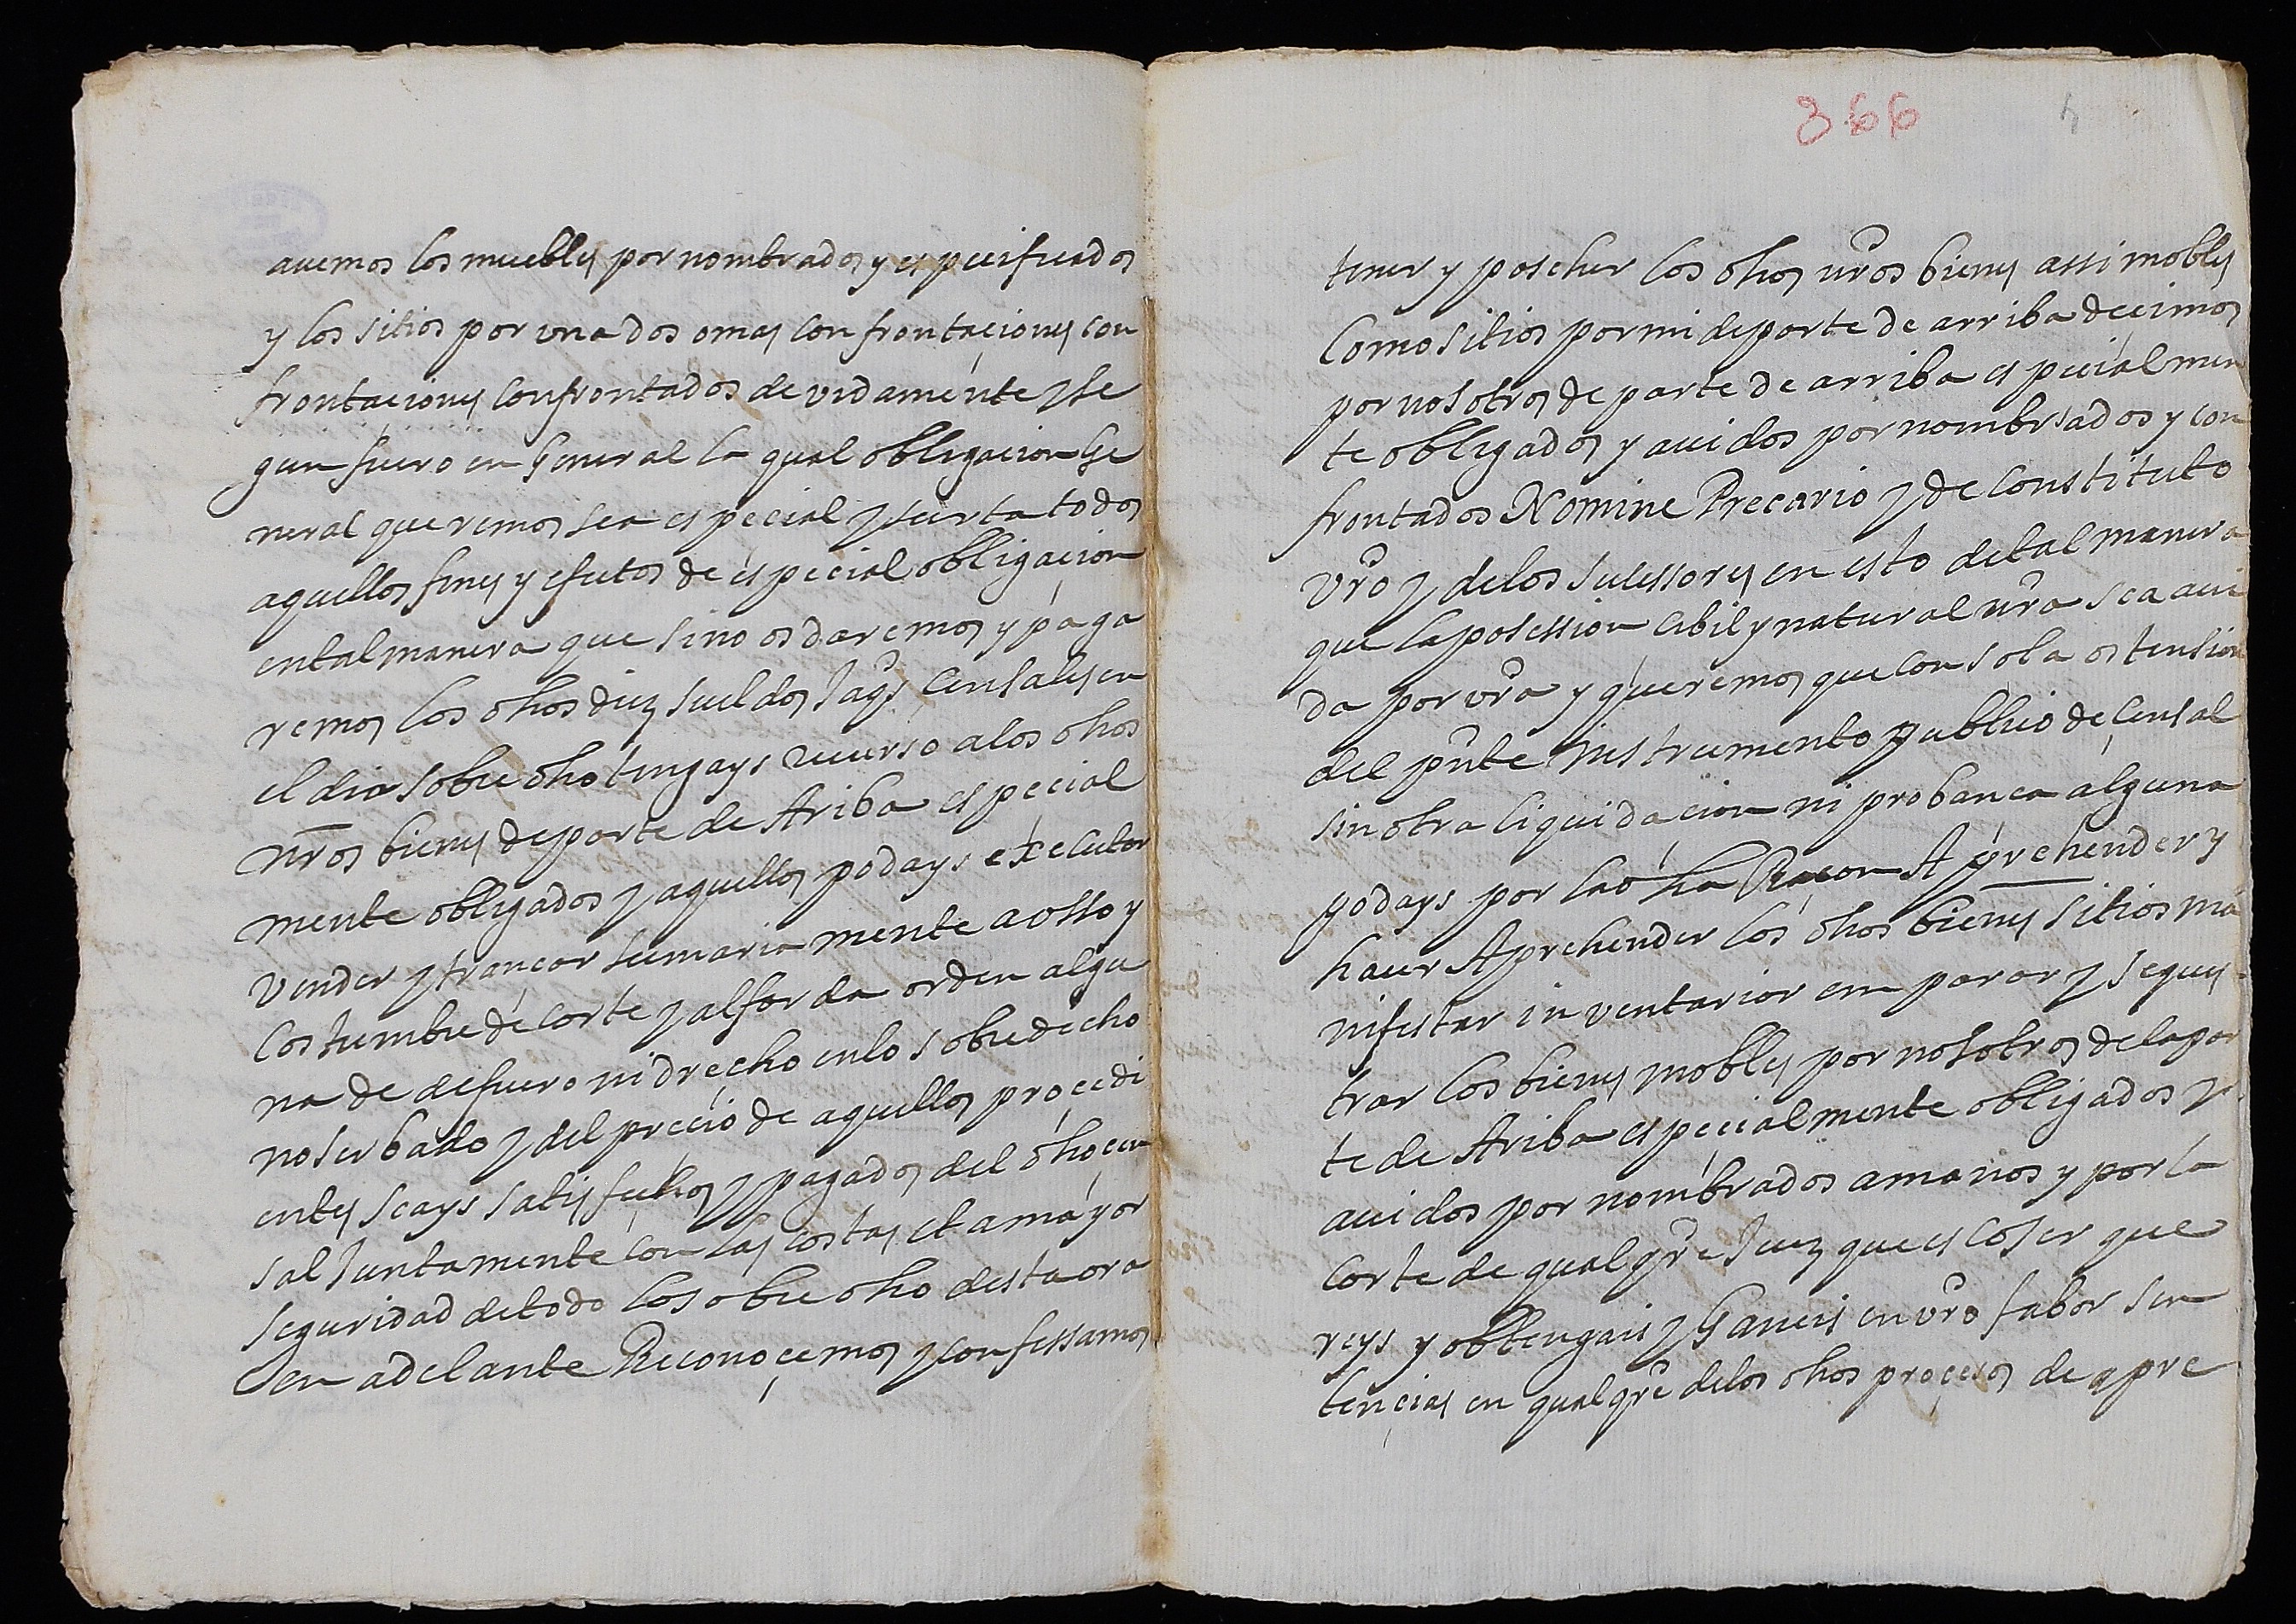 auemos los muebles por nombrados y especificados
y los sitios por una dos o mas confrontaciones con
frontaciones confrontados devidamente y se
gun fuero en General la qual obligacion Ge
neral queremos sea especial y surta todos
aquellos fines y efectos de especial obligacion
en tal manera que si no os daremos y paga
remos los dhos diez sueldos Jaqs censales en
el dia sobredho tengays recurso a los dhos
nros bienes de parte de Ariba especial
mente obligados y aquellos podays executar
vender y trançar sumariamente a vsso y
costumbre de corte y alfarda orden algu
na de de fuero ni drecho en lo sobredecho
no serbado y del precio de aquellos procedi
entes seays satisfechos y pagados del dho cen
sal Juntamente con las costas et a mayor
seguridad de todo lo sobredho desta ora
en adelante Reconoçemos y confessamos
366
4
tener y poseher los dhos nros bienes assi mobles
como sitios por mi de parte de arriba decimos
por nosotros de parte de arriba especialmen
te obligados y auidos por nombrados y con
frontados Nomine Precario y de constituto
vro y de los sucessores en esto de tal manera
que la posession cibil y natural nra sea aui
da por vra y queremos que con sola ostension
del pnte instrumento publico de censal
sin otra liquidacion ni probanca alguna
podays por la dha Raçon Aprehender y
hacer Aprehender los dhos bienes sitios ma
nifestar inventariar emparar y seques
trar los bienes mobles por nosotros de la par
te de Ariba especialmente obligados y
auidos por nombrados a manos y por la
corte de qualqre Juez que escoser que
reys y obtengais y Ganeis en vro fabor sen
tençias en qualqre de los dhos proçesos de apre